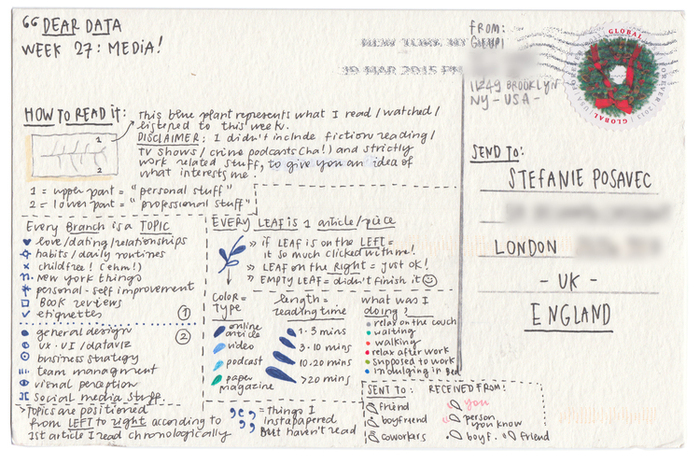 DEAR DATA
WEEK 27: MEDIA!
NEW YORK NY
19 MAR 2015 PM
FROM:
11249 BROOKLYN
NY - USA -
GLOBAL
FOREVER
GLOBAL
HOW TO READ IT:
1
2
This blue plant represents what I read / watched /
listened to this week.
DISCLAIMER: I didn't include fiction reading /
TV shows / crime podcasts (ha!) and strictly
work related stuff, to give you an idea of
what interests me.
1 = upper part = "personal stuff"
2 = lower part = "professional stuff"
SEND TO:
STEFANIE POSAVEC
LONDON
- UK -
ENGLAND
Every Branch is a TOPIC
love/dating/relationships
habits / daily routines
childfree! (ehm!)
New York things
personal-self improvement
Book reviews
etiquettes
1
general design
UX-UI / dataviz
business strategy
team managment
visual perception
social media stuff.
2
> Topics are positioned
from LEFT to right according to
1st article I read chronologically
EVERY LEAF IS 1 article/piece
>> if LEAF is on the LEFT =
it so much clicked with me!
>> LEAF on the Right = just ok!
>> EMPTY LEAF = didn't finish it
COLOR =
Type
online
article
video
podcast
paper
magazine
length =
reading time
1-3 mins
3-10 mins
10-20 mins
>20 mins
what was I
doing?
relax on the couch
waiting
walking
relax after work
supposed to work
indulging in bed
= Things I
instapapered
but haven't read
SENT TO:
friend
boyfriend
coworkers
RECEIVED FROM:
you
person
you know
boyf.
friend